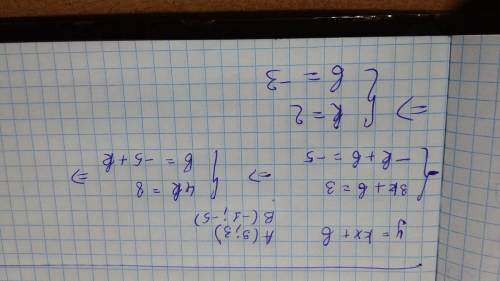 y = kx + b
A (3; 3)
B (-1; -5)
{ 3k + b = 3
-k + b = -5
=> { 4k = 8
b = -5 + k
=>
=> { k = 2
b = -3